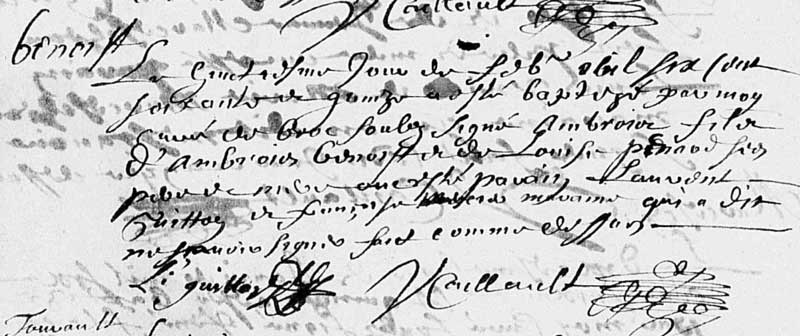 Caillault
benoist
Le huictiesme Jour de febr mil six cent
soixante et quinze a esté baptizé par moy
curé de broc soubz signé Ambroise fils
d'Ambroise benoist et de Louise pinard ses
pere et mere ont esté parain Laurent
Guitton et françoise maraine qui a dit
ne scavoir signer fait comme dessus
L. guitton Caillault